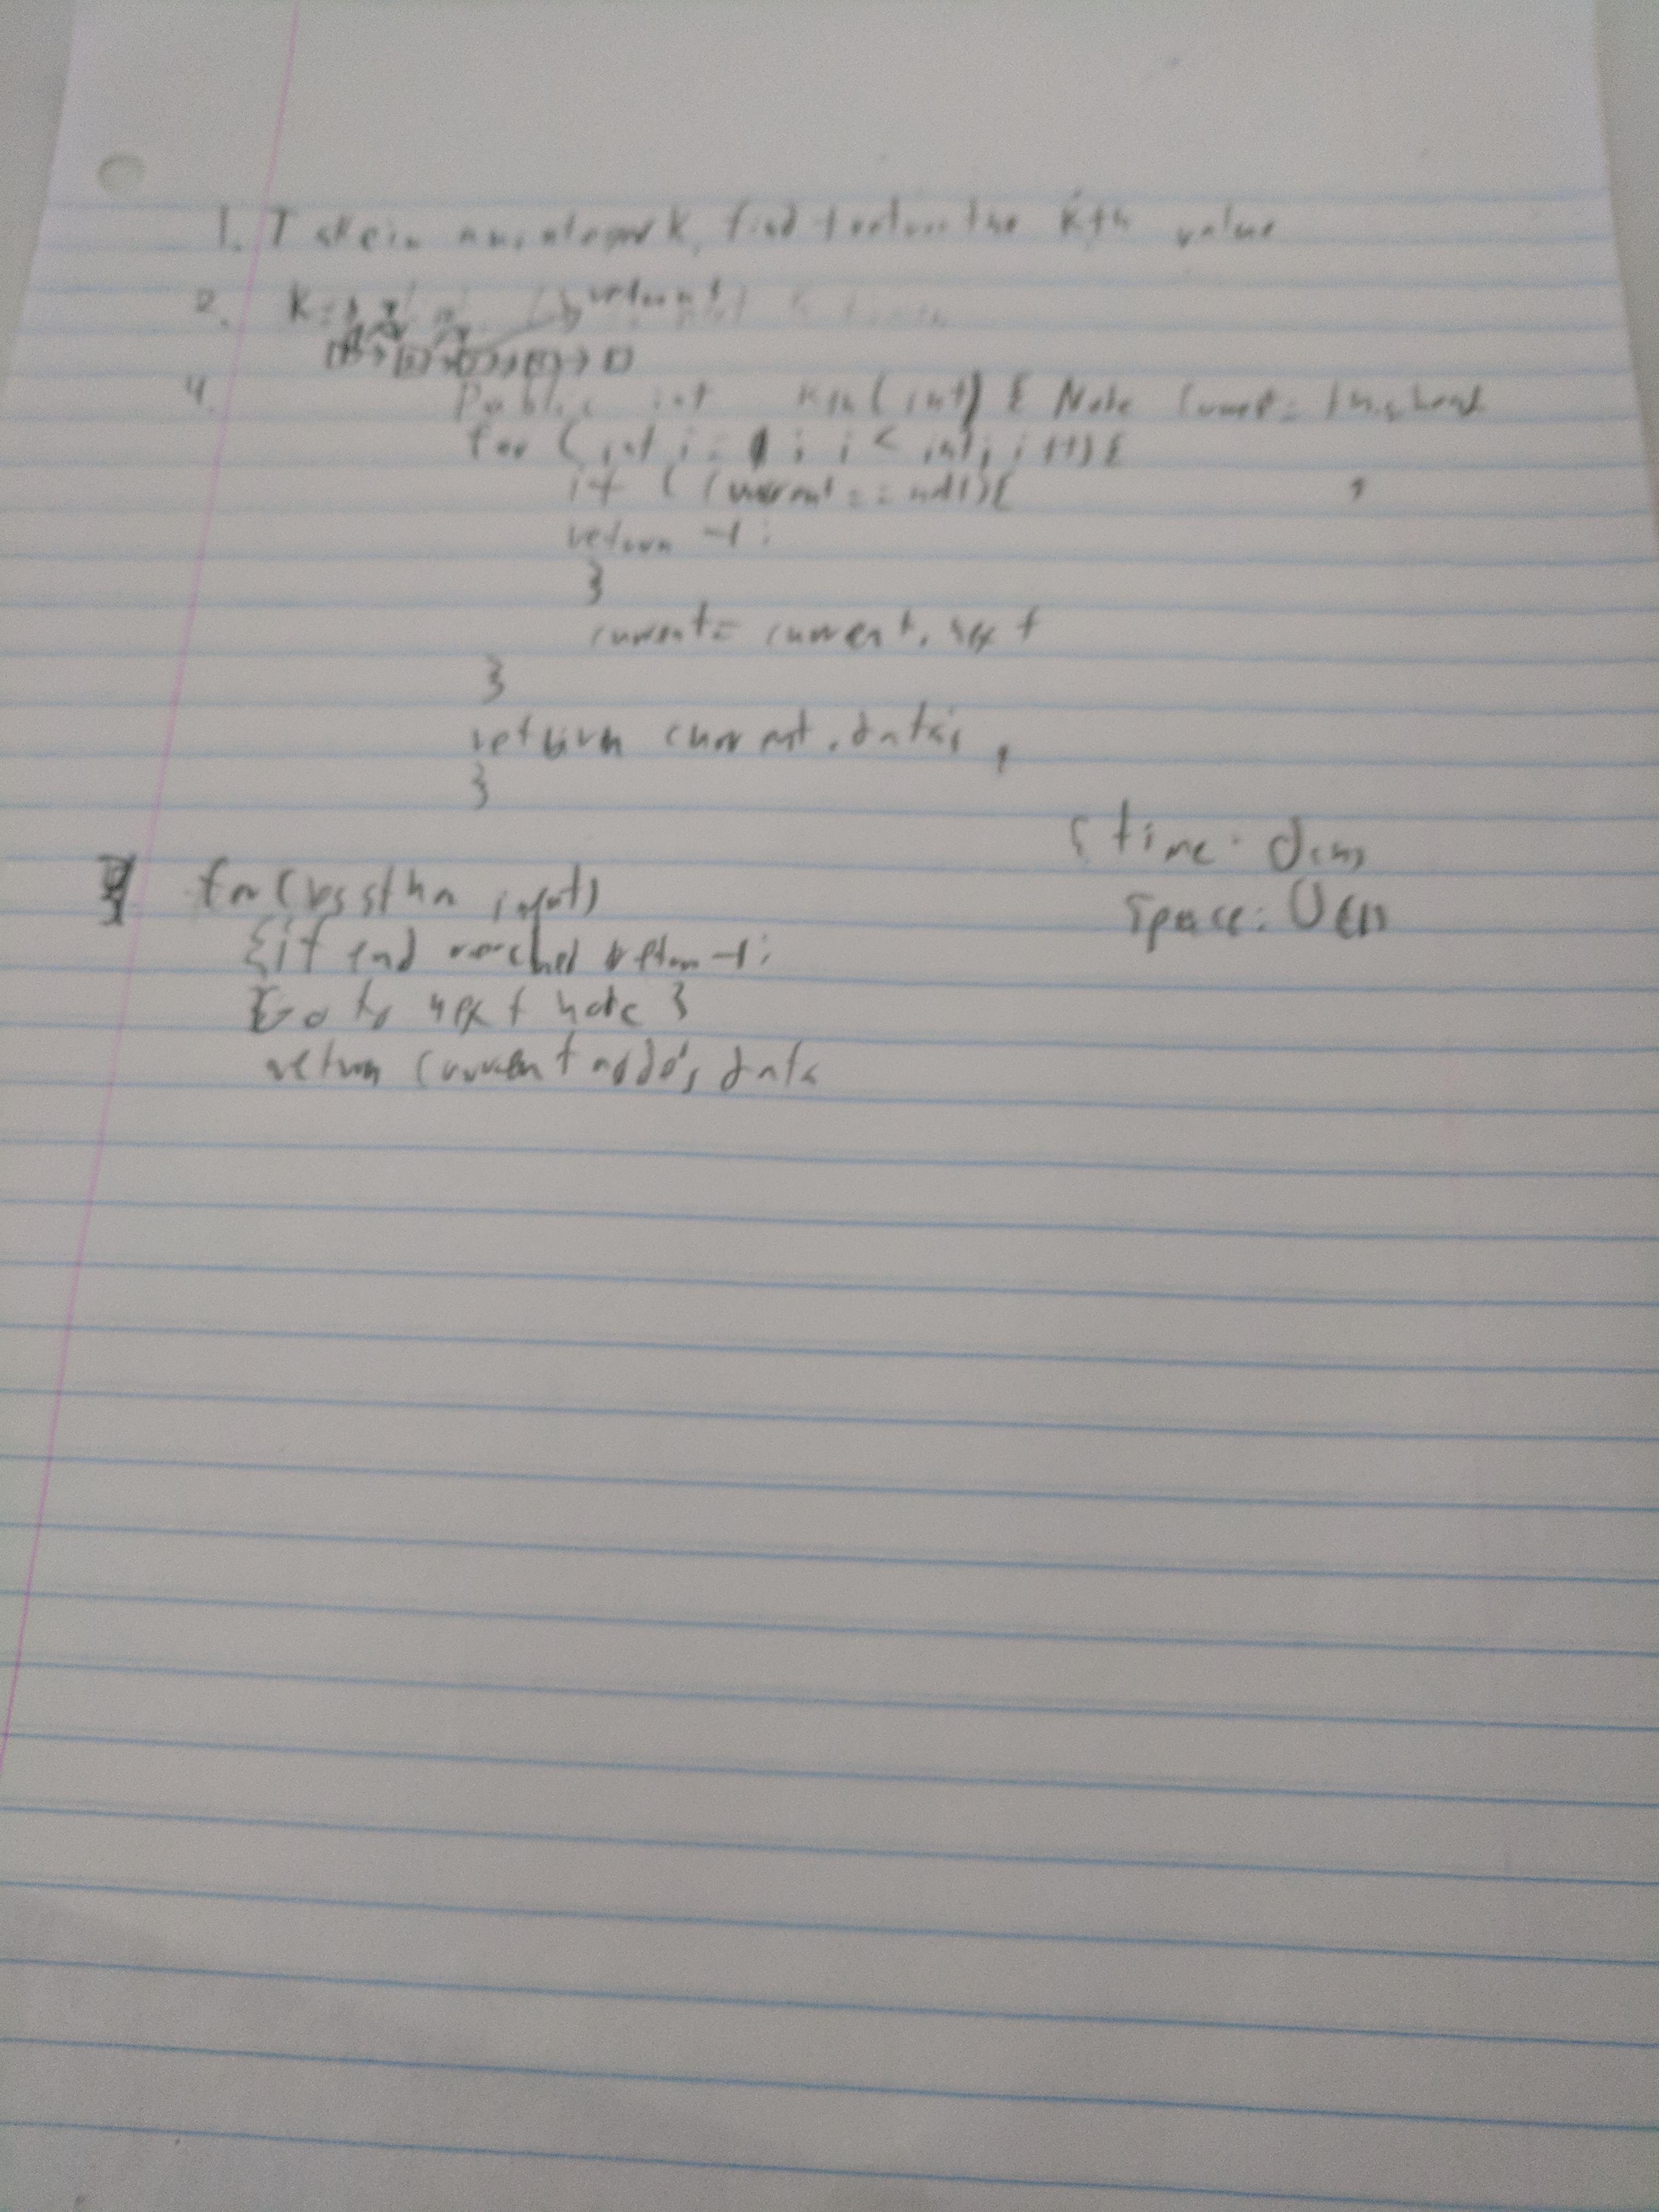 1. Take in an integer k, find + return the kth value
2. K=3 return
4. Public int kth(int) { Node current = this.head
for (int i = 0; i < int; i++) {
if (current == null) {
return -1;
}
current = current.next
}
return current.data;
}
5 time: O(n)
space: O(1)
3 for (less than input)
{if end reached return -1;
Go to next node }
return current node's data